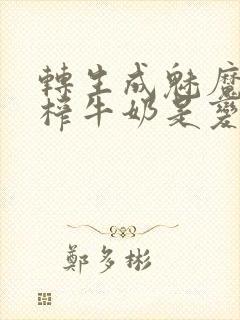 轉生成魅魔
榨牛奶是變
鄭多彬